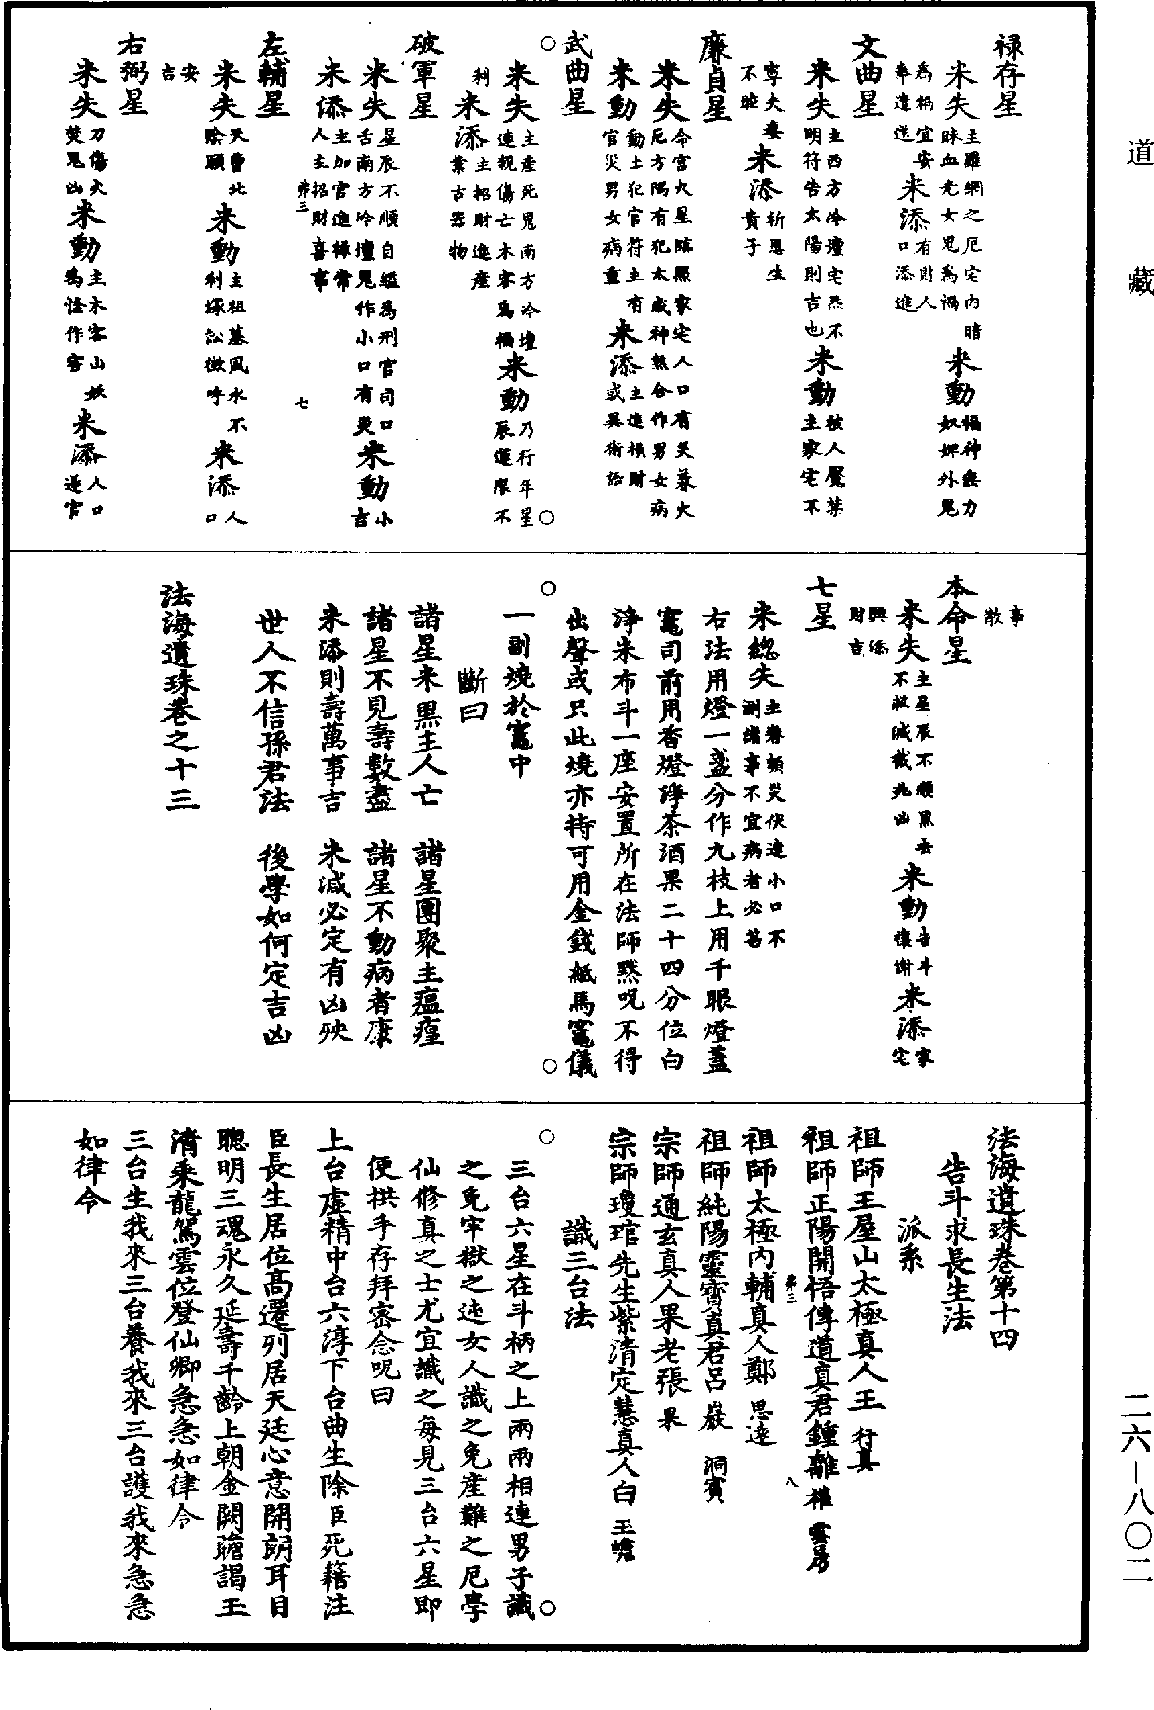 道藏
禄存星
米失主羅網之厄宅内暗昧血光女鬼爲禍米動福神無力奴婢外鬼
爲禍宜安奉遣送米添有財人口添進
文曲星
米失主西方冷壇宅炁不明符告太陽則吉也米動主被人魘禁家宅不
寧火毒不旺米添祈恩生貴子
廉貞星
米失命宮火星臨照家宅人口有災暮火厄方隅有犯太歲神煞合作男女病
米動動土犯官符主有官災男女病重米添主進横財或異術怡
武曲星
米失主産死鬼南方冷壇連親傷亡木客爲禍米動乃行年星辰運限不
利米添主招財進産業古器物
破軍星
米失星辰不順自縊爲刑官司口舌南方冷壇鬼作小口有災米動小吉
米添主加官進禄常人主招財喜事
左輔星
米失天曹北陰願米動主祖墓風水不利塚訟徵呼米添人口
安吉
右弼星
米失刀傷火焚鬼凶米動主木客山妖爲怪作害米添人口遷官
事散
本命星
米失主星辰不順黑雲不救減截死凶米動告斗禳謝米添家宅
興添財吉
七星
米總失主眷類災伏連小口不測諸事不宜病者必苦
右法用燈一盞分作九枝上用千眼燈蓋
竈司前用香燈淨茶酒果二十四分位白
淨米布斗一座安置所在法師黙呪不得
出聲或只此燒亦特可用金錢紙馬竈儀
一副燒於竈中
斷曰
諸星米黑主人亡　諸星團聚主瘟㾮
諸星不見壽數盡　諸星不動病者康
米添則壽萬事吉　米減必定有凶殃
世人不信孫君法　後學如何定吉凶
法海遺珠卷之十三
法海遺珠卷第十四
告斗求長生法
派系
祖師王屋山太極真人王行真
祖師正陽開悟傳道真君鍾離權雲房
祖師太極内輔真人鄭思遠
祖師純陽靈寶真君呂巖洞賓
宗師通玄真人果老張果
宗師瓊琯先生紫清定慧真人白玉蟾
識三台法
三台六星在斗柄之上兩兩相連男子識
之免牢獄之迍女人識之免産難之厄學
仙修真之士尤宜識之每見三台六星即
便拱手存拜密念呪曰
上台虚精中台六淳下台曲生除臣死籍注
臣長生居位高遷列居天廷心意開朗耳目
聰明三魂永久延壽千齡上朝金闕瞻謁玉
清乘龍駕雲位登仙卿急急如律令
三台生我來三台養我來三台護我來急急
如律令
二六—八〇二